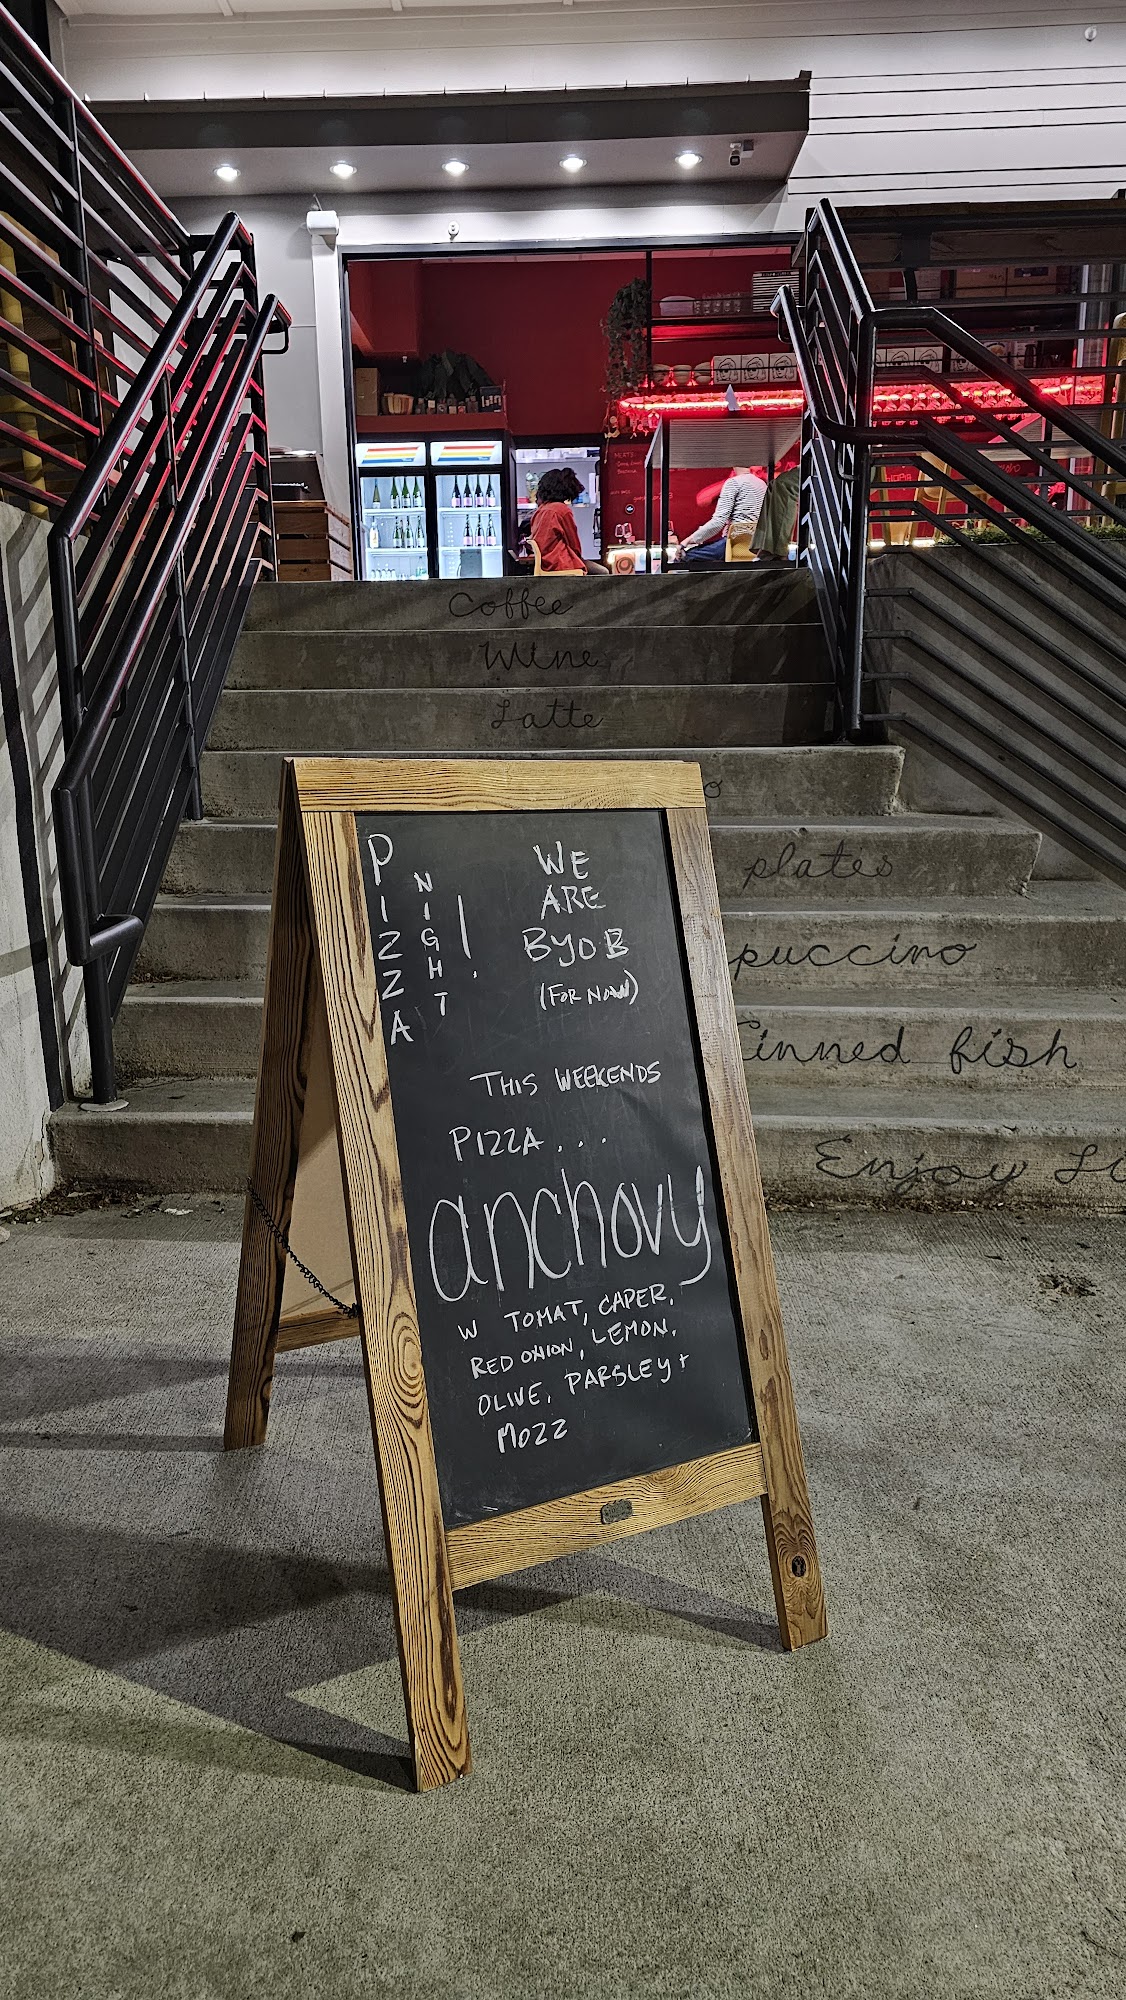 Coffee
Wine
Latte
plates
puccino
inned fish
Enjoy
PIZZA
NIGHT!
WE
ARE
BYOB
(FOR NOW)
THIS WEEKENDS
PIZZA...
anchovy
W TOMAT, CAPER,
RED ONION, LEMON,
OLIVE, PARSLEY +
MOZZ